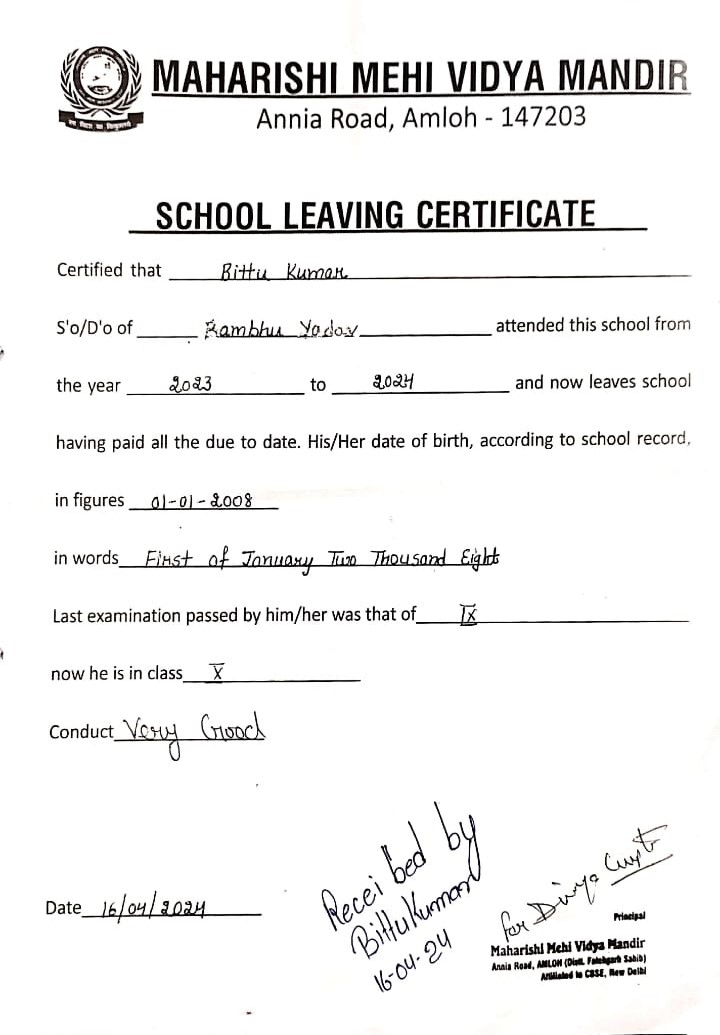 MAHARISHI MEHI VIDYA MANDIR
Annia Road, Amloh - 147203
SCHOOL LEAVING CERTIFICATE
Certified that Bittu Kumar
S'o/D'o of Rambhu Yadav attended this school from
the year 2023 to 2024 and now leaves school
having paid all the due to date. His/Her date of birth, according to school record,
in figures 01-01-2008
in words First of January Two Thousand Eight
Last examination passed by him/her was that of IX
now he is in class X
Conduct Very Good
Date 16/04/2024
Receibed by
Bittu Kumar
16-04-24
for Divya Gupta
Principal
Maharishi Mehi Vidya Mandir
Annia Road, AMLOH (Distt. Fatehgarh Sahib)
Affiliated to CBSE, New Delhi